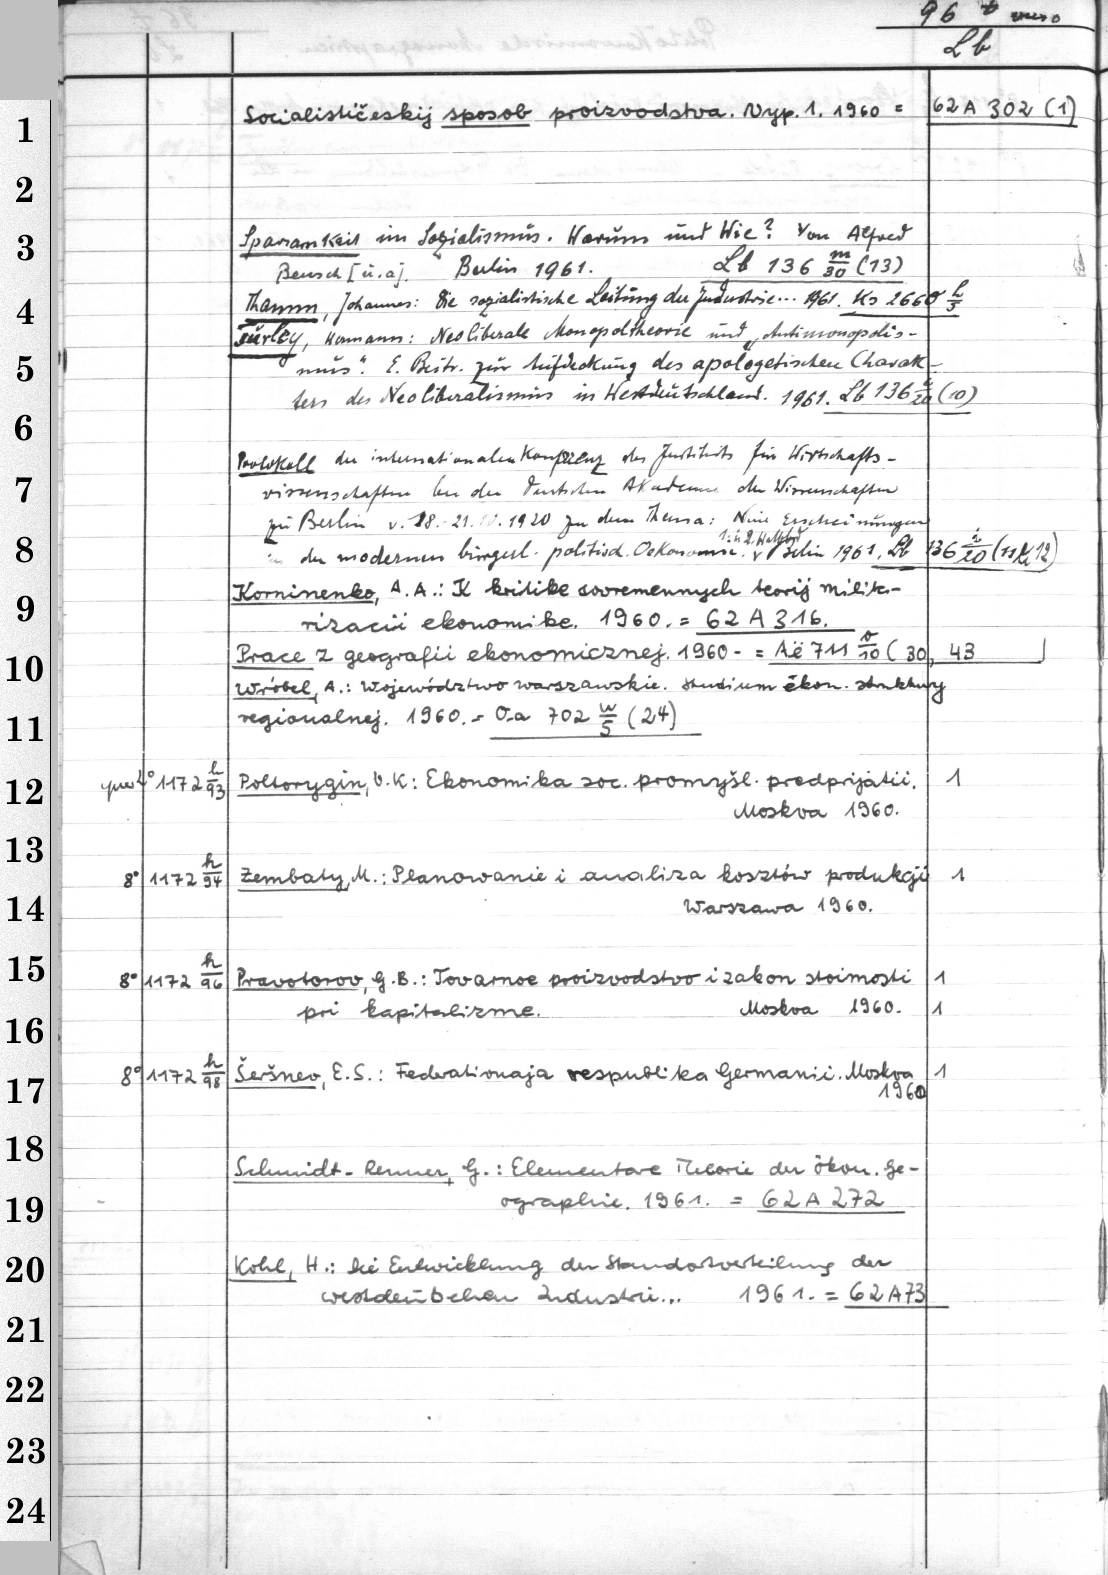 96 verso
Lb
1 Socialističeskij sposob proizvodstva. Vyp. 1. 1960 = 62 A 302 (1)
2
3 Sparsamkeit im Sozialismus. Warum und Wie? Von Alfred
Bensch [u. a]. Berlin 1961. Lb 136 m/30 (13)
4 Thamm, Johannes: Die sozialistische Leitung der Industrie... 1961. Ks 2660 h/5
Türley, Hermann: Neoliberale Monopoltheorie und „Antimonopolis-
5 mus". E. Beitr. zur Aufdeckung des apologetischen Charak-
ters des Neoliberalismus in Westdeutschland. 1961. Lb 136 /20 (10)
6
Protokoll der internationalen Konferenz des Instituts für Wirtschafts-
7 wissenschaften bei der Deutschen Akademie der Wissenschaften
zu Berlin v. 18.-21. 1920 zu dem Thema: Neue Erscheinungen
8 in der modernen bürgerl. politisch. Oekonomie. 1. u 2. Halbbd Berlin 1961. Lb 136 /20 (11 12)
9 Korninenko, A. A.: K kritike sovremennych teorij milita-
rizacii ekonomike. 1960. = 62 A 316.
10 Prace z geografii ekonomicznej. 1960 - = Aë 711 /10 (30, 43
Wróbel, A.: Województwo warszawskie. Studium ekon. struktury
11 regionalnej. 1960. = Oa 702 w/5 (24)
12 4° 1172 h/93 Poltorygin, V. K: Ekonomika soc. promyšl. predprijatii. 1
Moskva 1960.
13
8° 1172 h/94 Zembaty, M.: Planowanie i analiza kosztów produkcji 1
14 Warszawa 1960.
15 8° 1172 h/96 Pravotorov, G. B.: Tovarnoe proizvodstvo i zakon stoimosti 1
16 pri kapitalizme. Moskva 1960. 1
17 8° 1172 h/98 Šeršnev, E. S.: Federationaja respublika Germanii. Moskva 1
1960
18 Schmidt-Renner, G.: Elementare Theorie der ökon. Ge-
19 ographie. 1961. = 62 A 272
20 Kohl, H.: Die Entwicklung der Standortverteilung der
westdeutschen Industrie... 1961. = 62 A 73
21
22
23
24